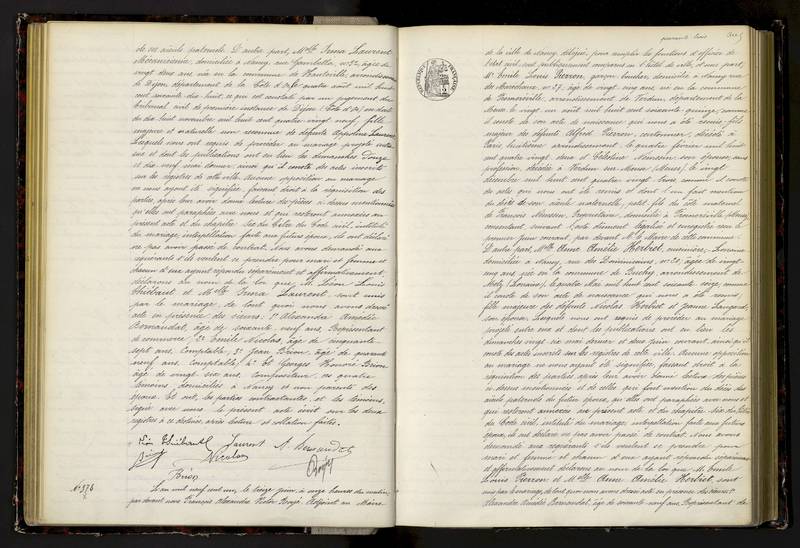 de ses aïeuls paternels. D'autre part, Mlle Irma Laurent
Mécanicienne, domiciliée à Nancy, rue Gambetta, n°32, âgée de
vingt deux ans, née en la commune de Hauteville, arrondissement
de Dijon, département de la Côte d'Or, le quatre août mil huit
cent soixante dix huit, ce qui est constaté par un jugement du
tribunal civil de première instance de Dijon (Côte d'Or) en date
du dix huit novembre mil huit cent quatre vingt neuf, fille
majeure et naturelle non reconnue de défunte Apolline Laurent,
Lesquels nous ont requis de procéder au mariage projeté entre
eux et dont les publications ont eu lieu les dimanches douze
et dix neuf mai dernier, ainsi qu'il conste des actes inscrits
sur les registres de cette ville. Aucune opposition au mariage
ne nous ayant été signifiée, faisant droit à la réquisition des
parties, après leur avoir donné lecture des pièces ci dessus mentionnées
qu'elles ont paraphées avec nous et qui resteront annexées au
présent acte et du chapitre six du Titre du Code civil, intitulé
du mariage, interpellation faite aux futurs époux, ils ont déclaré
ne pas avoir passé de contrat. Nous avons demandé aux
requérants s'ils veulent se prendre pour mari et femme et
chacun d'eux ayant répondu séparément et affirmativement,
déclarons au nom de la loi que M. Léon Louis
Thiébaut et Mlle Irma Laurent, sont unis
par le mariage, de tout quoi nous avons dressé
acte en présence des sieurs: 1° Alexandre Amédée
Bernardat, âgé de soixante neuf ans, Représentant
de commerce; 2° Emile Nicolas, âgé de cinquante
sept ans, Comptable; 3° Jean Brion, âgé de quarante
neuf ans, Comptable; 4° Et Georges Honoré Brion
âgé de vingt six ans, Compositeur; ces quatre
témoins, domiciliés à Nancy et non parents des
époux. Et ont, les parties contractantes, et les témoins,
signé avec nous le présent acte écrit sur les deux
registres à ce destinés, après lecture et collation faites.
Léon Thiébaut Laurent A. Bernardat
Nicolas
Brion
N° 376
L'an mil neuf cent un, le treize juin, à onze heures du matin
par devant nous François Alexandre Victor Bouzé, Adjoint au Maire
quarante trois
RÉPUBLIQUE FRANÇAISE
de la ville de Nancy, délégué pour remplir les fonctions d'officier de
l'état civil, sont publiquement comparus en l'hôtel de ville, d'une part,
Mr. Emile Louis Pierron, garçon boucher, domicilié à Nancy, rue
de Marcheville, n°27, âgé de vingt cinq ans, né en la commune
de Fromeréville, arrondissement de Verdun, département de la
Meuse, le vingt un août mil huit cent soixante quinze, comme
il conste de son acte de naissance qui nous a été remis, fils
majeur des défunts Alfred Pierron, cantonnier, décédé à
Paris, huitième arrondissement, le quatre février mil huit
cent quatre vingt deux et Célestine Mansson son épouse, sans
profession, décédée à Verdun sur Meuse (Meuse), le vingt
décembre mil huit cent quatre vingt trois, comme il conste
des actes qui nous ont été remis et dont l'un fait mention
du décès de son aïeule maternelle, petit fils du côté maternel
de François Mansson, Propriétaire, domicilié à Fromeréville (Meuse),
consentant suivant l'acte
premier juin courant, par devant Mr le Maire de cette commune.
D'autre part, Mlle Anne Amélie Herbret, cuisinière,
domiciliée à Nancy, rue des Dominicains, n°20, âgée de vingt
cinq ans, née en la commune de Buchy, arrondissement de
Metz (Lorraine), le quatre mai mil huit cent soixante seize, comme
il conste de son acte de naissance qui nous a été remis,
fille majeure des défunts Nicolas Herbret et Jeanne
son épouse. Lesquels nous ont requis de procéder au mariage
projeté entre eux et dont les publications ont eu lieu les
dimanches vingt six mai dernier et deux juin courant ainsi qu'il
conste des actes inscrits sur les registres de cette ville. Aucune opposition
au mariage ne nous ayant été signifiée, faisant droit à la
réquisition des parties, après leur avoir donné lecture des pièces
ci dessus mentionnées et de celles qui font mention du décès des
aïeuls paternels du futur époux, qu'elles ont paraphées avec nous et
qui resteront annexées au présent acte et du chapitre six du Titre
du Code civil, intitulé du mariage, interpellation faite aux futurs
époux, ils ont déclaré ne pas avoir passé de contrat. Nous avons
demandé aux requérants s'ils veulent se prendre pour
mari et femme et chacun d'eux ayant répondu séparément
et affirmativement, déclarons au nom de la loi que M. Emile
Louis Pierron et Mlle Anne Amélie Herbret, sont
unis par le mariage, de tout quoi nous avons dressé acte en présence des sieurs: 1°
Alexandre Amédée Bernardat, âgé de soixante neuf ans, Représentant de